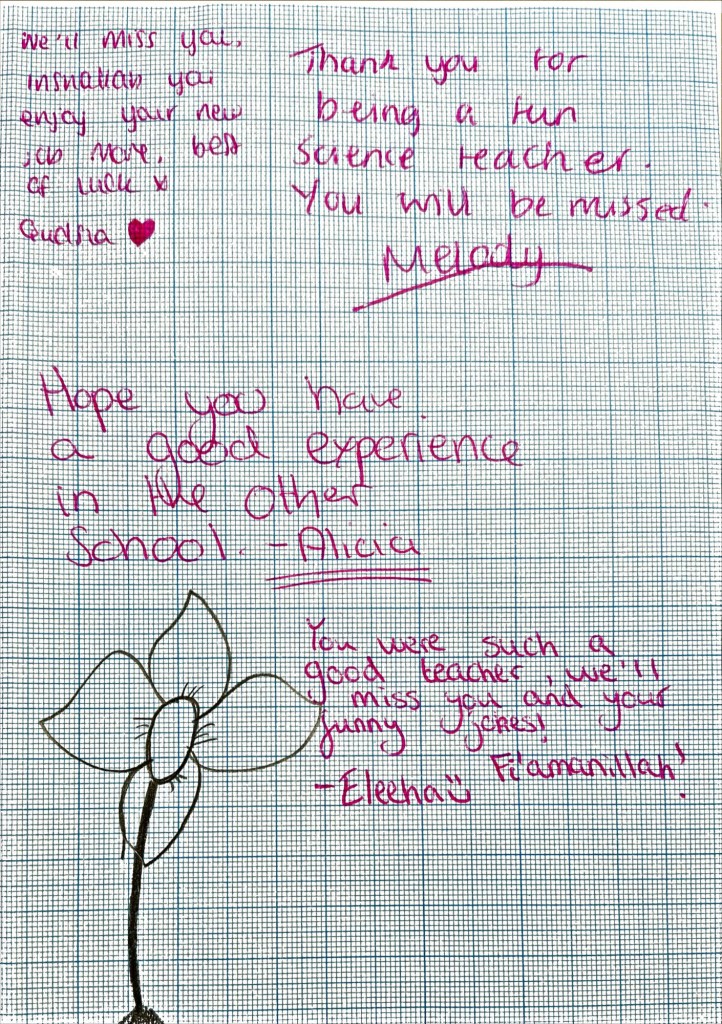 We'll miss you,
inshallah you
enjoy your new
job more, best
of luck x
Thank you for
being a fun
science teacher.
You will be missed.
Melody
Hope you have
a good experience
in the other
School. -Alicia
You were such a
good teacher, we'll
miss you and your
funny jokes!
Fi'amanillah!
-Eleeha